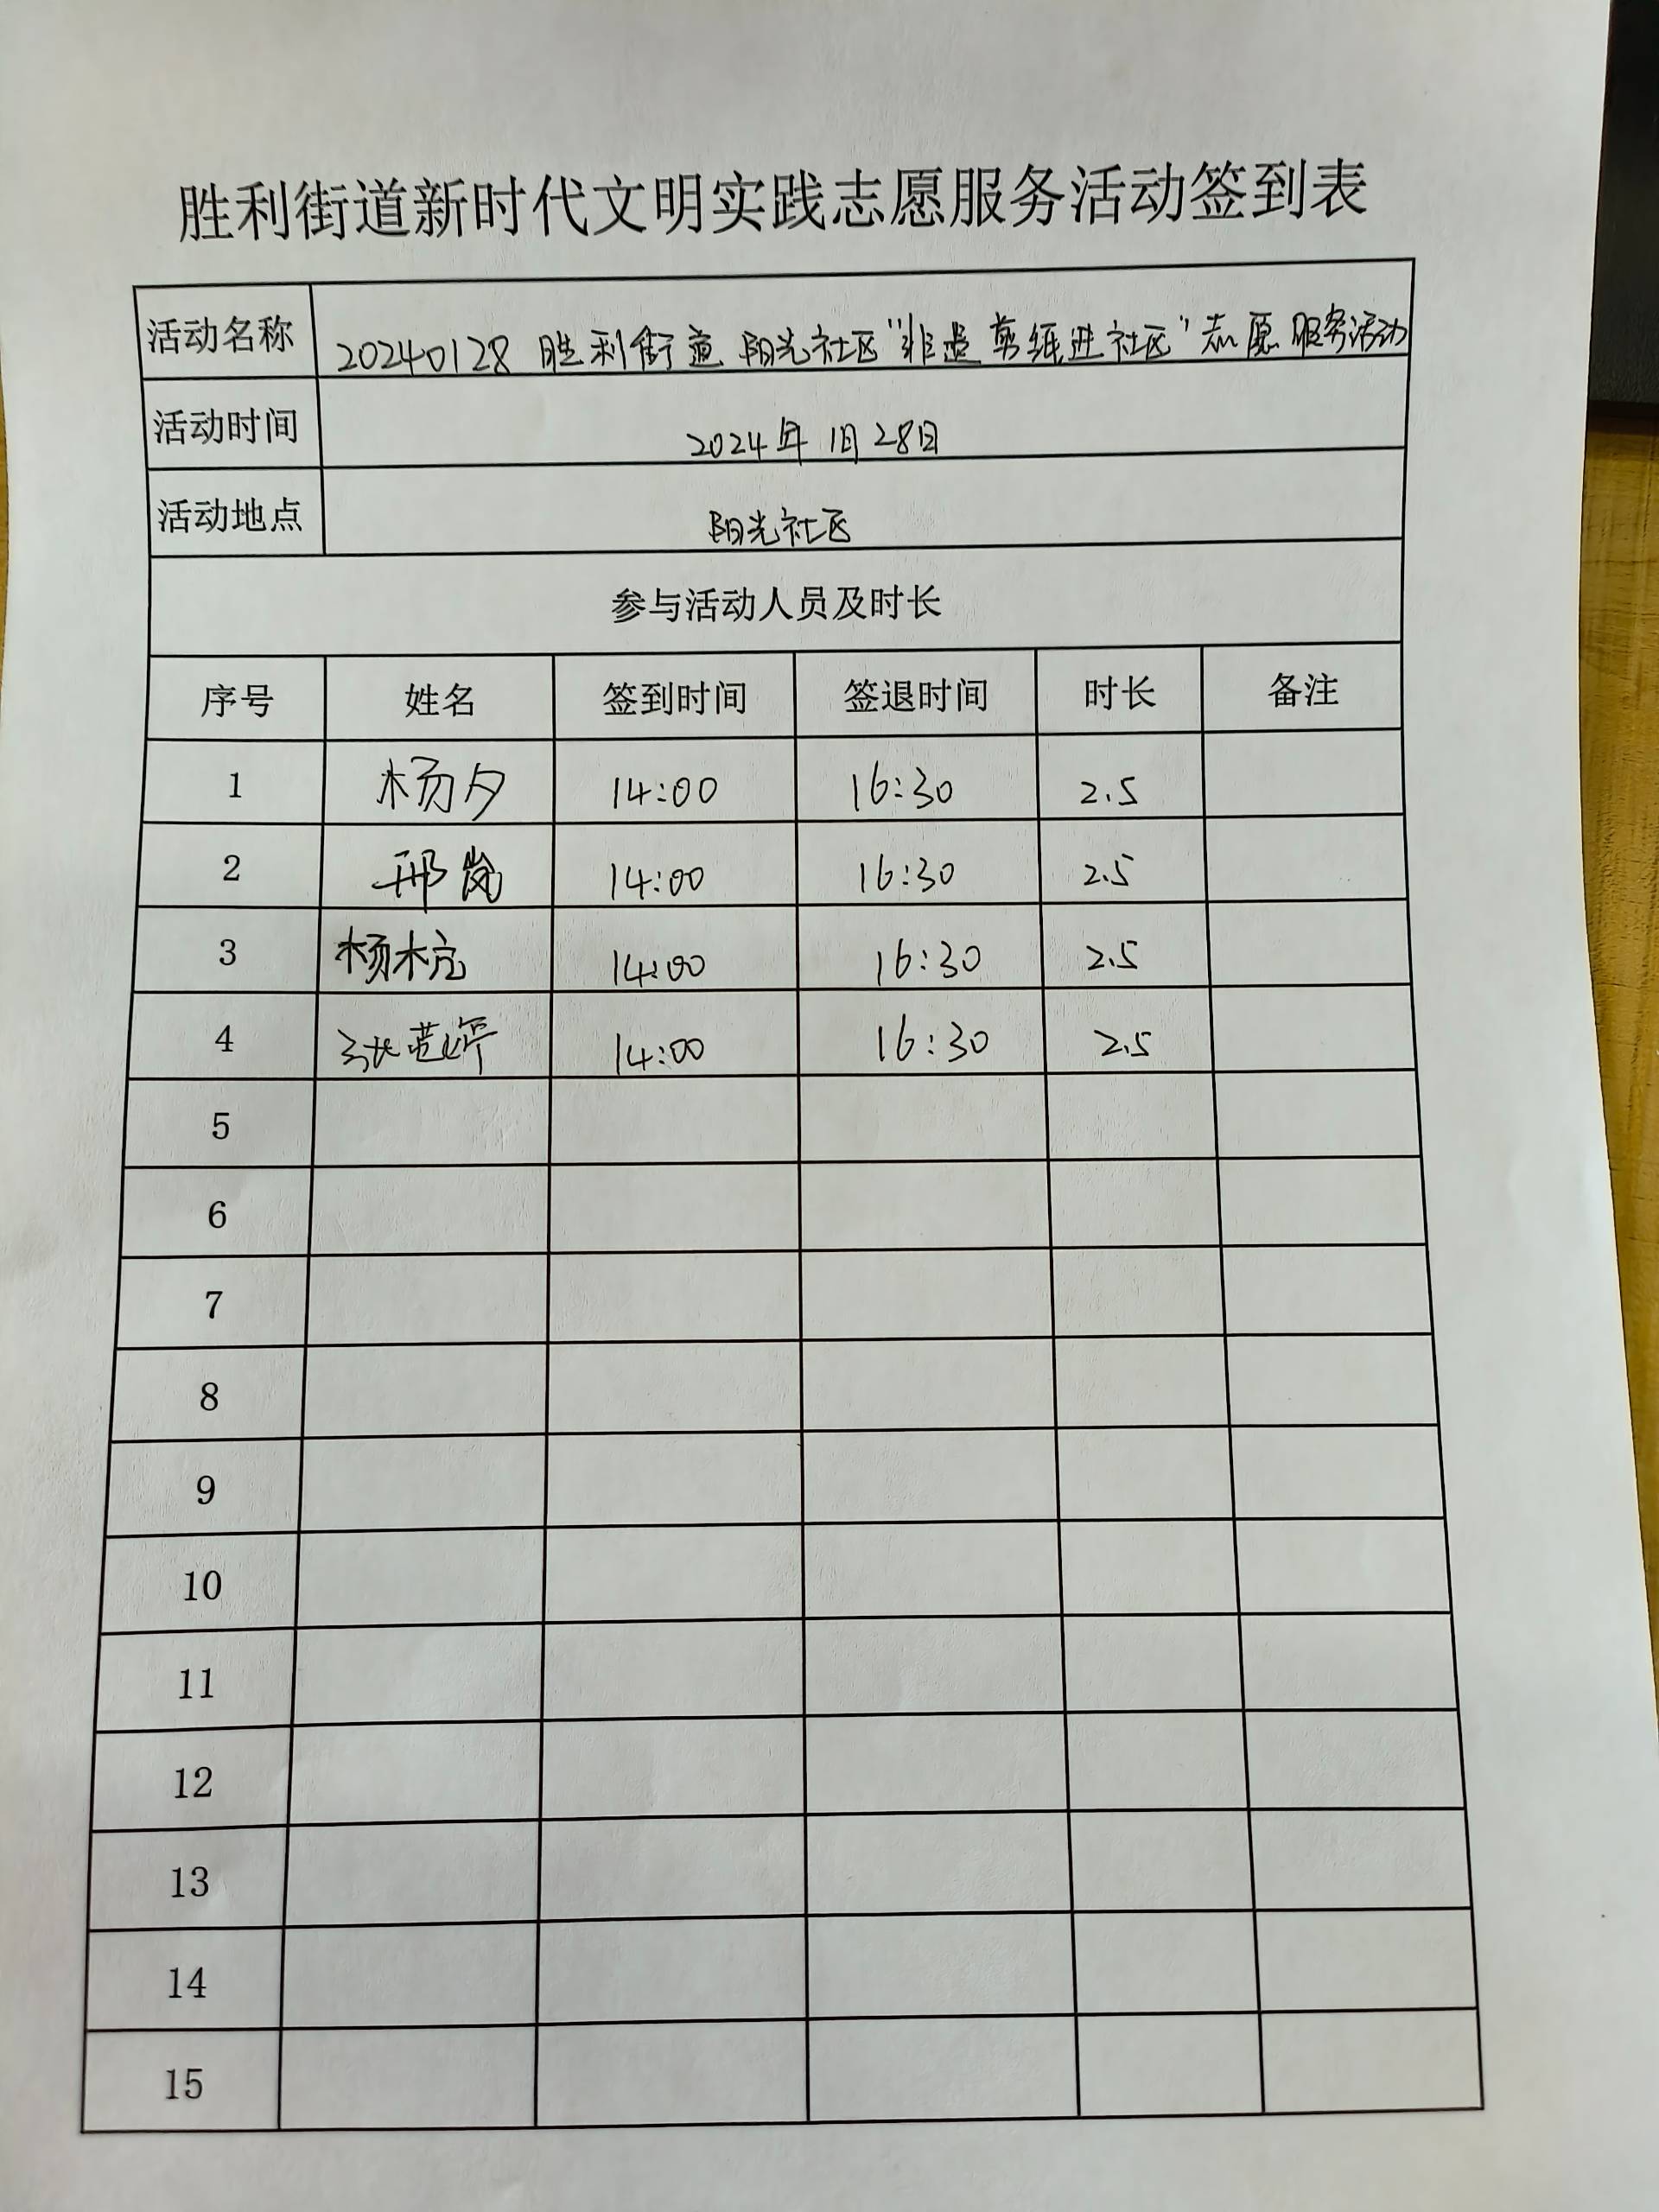 胜利街道新时代文明实践志愿服务活动签到表
活动名称 20240128 胜利街道 阳光社区"非遗剪纸进社区"志愿服务活动
活动时间 2024年1月28日
活动地点 阳光社区
参与活动人员及时长
序号 姓名 签到时间 签退时间 时长 备注
1 杨夕 14:00 16:30 2.5
2 邢岚 14:00 16:30 2.5
3 14:00 16:30 2.5
4 14:00 16:30 2.5
5
6
7
8
9
10
11
12
13
14
15